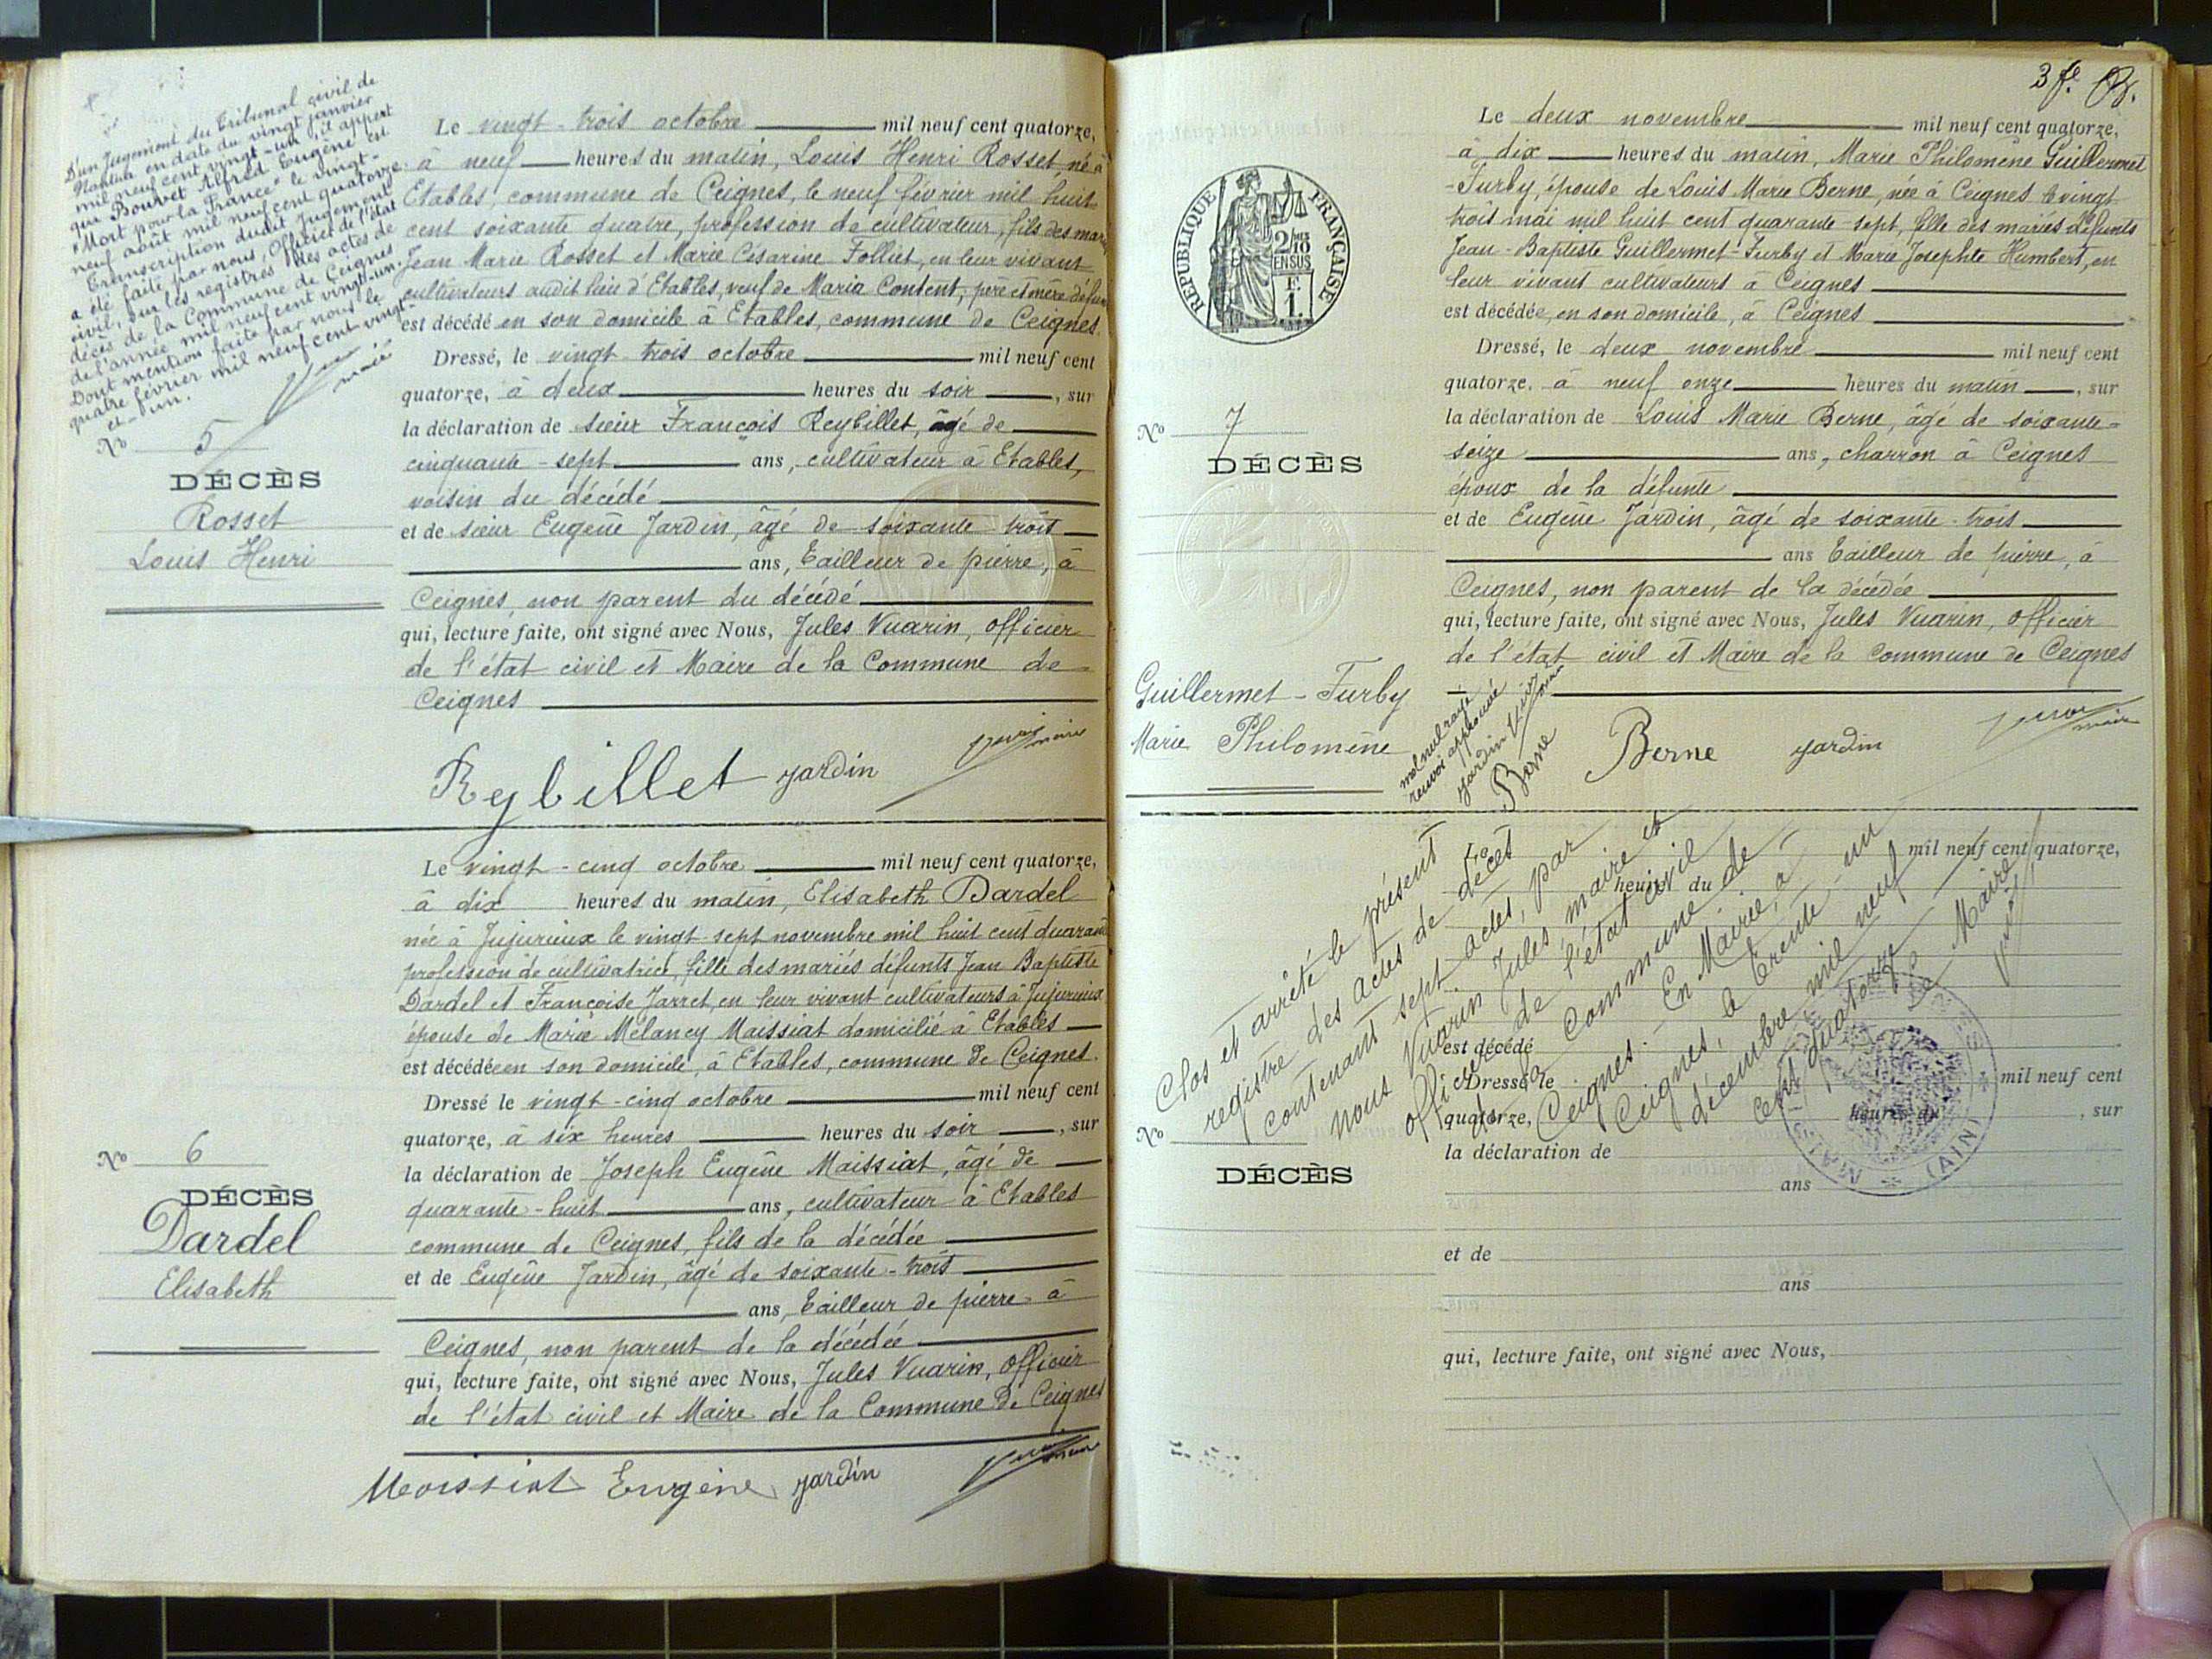 D'un Jugement du Tribunal civil de
Nantua en date du vingt janvier
mil neuf cent vingt-un, il appert
que Bouvet Alfred Eugène est
"Mort pour la France" le vingt-
neuf août mil neuf cent quatorze.
Transcription dudit Jugement
a été faite par nous, Officier de l'état
civil, sur les registres des actes de
décès de la Commune de Ceignes
de l'année mil neuf cent vingt-un.
Dont mention faite par nous le
quatre février mil neuf cent vingt-
et-un.
maire
No 5
DÉCÈS
Rosset
Louis Henri
Le vingt-trois octobre mil neuf cent quatorze,
à neuf heures du matin, Louis Henri Rosset né à
Etables, commune de Ceignes, le neuf février mil huit
cent soixante quatre, profession de cultivateur, fils des mariés
Jean Marie Rosset et Marie Césarine Folliet, en leur vivant
cultivateurs audit lieu d'Etables, veuf de Maria Content, père et mère défunts
est décédé en son domicile à Etables, commune de Ceignes.
Dressé, le vingt-trois octobre mil neuf cent
quatorze, à deux heures du soir, sur
la déclaration de sieur François Reybillet, âgé de
cinquante-sept ans, cultivateur à Etables,
voisin du décédé
et de sieur Eugène Jardin, âgé de soixante-trois
ans, tailleur de pierre, à
Ceignes, non parent du décédé
qui, lecture faite, ont signé avec Nous, Jules Vuarin, officier
de l'état civil et Maire de la Commune de
Ceignes
Reybillet jardin maire
No 6
DÉCÈS
Dardel
Elisabeth
Le vingt-cinq octobre mil neuf cent quatorze,
à dix heures du matin, Elisabeth Dardel
née à Jujurieux le vingt-sept novembre mil huit cent quarante
profession de cultivatrice, fille des mariés défunts Jean Baptiste
Dardel et Françoise Jarret, en leur vivant cultivateurs à Jujurieux
épouse de Marie Mélancy Maissiat domicilié à Etables
est décédée en son domicile, à Etables, commune de Ceignes.
Dressé le vingt-cinq octobre mil neuf cent
quatorze, à six heures heures du soir, sur
la déclaration de Joseph Eugène Maissiat, âgé de
quarante-huit ans, cultivateur à Etables
commune de Ceignes, fils de la décédée
et de Eugène Jardin, âgé de soixante-trois
ans, tailleur de pierre à
Ceignes, non parent de la décédée
qui, lecture faite, ont signé avec Nous, Jules Vuarin, Officier
de l'état civil et Maire de la Commune de Ceignes
Moissiat Eugène jardin
3 fe.
RÉPUBLIQUE FRANÇAISE
2/10 EN SUS
F. 1.
No 7
DÉCÈS
Guillermet-Furby
Marie Philomène
Le deux novembre mil neuf cent quatorze,
à dix heures du matin, Marie Philomène Guillermet
-Furby, épouse de Louis Marie Berne, née à Ceignes le vingt
trois mai mil huit cent quarante-sept, fille des mariés défunts
Jean-Baptiste Guillermet-Furby et Marie Josephte Humbert, en
leur vivant cultivateurs à Ceignes
est décédée, en son domicile, à Ceignes
Dressé, le deux novembre mil neuf cent
quatorze, à neuf onze heures du matin, sur
la déclaration de Louis Marie Berne, âgé de soixante-
seize ans, charron à Ceignes
époux de la défunte
et de Eugène Jardin, âgé de soixante-trois
ans tailleur de pierre, à
Ceignes, non parent de la décédée
qui, lecture faite, ont signé avec Nous, Jules Vuarin, officier
de l'état civil et Maire de la Commune de Ceignes
mot nul rayé
renvoi approuvé
jardin
Berne
Berne jardin maire
No
DÉCÈS
Le mil neuf cent quatorze,
heures du
est décédé
Dressé, le mil neuf cent
quatorze, heures du, sur
la déclaration de
ans
et de
ans
qui, lecture faite, ont signé avec Nous,
Clos et arrêté le présent
registre des actes de décès
contenant sept actes, par
nous Vuarin Jules maire et
officier de l'état civil
de la Commune de
Ceignes. - En Mairie, à
Ceignes, le trente-un
décembre mil neuf
cent quatorze
Le Maire
(AIN)